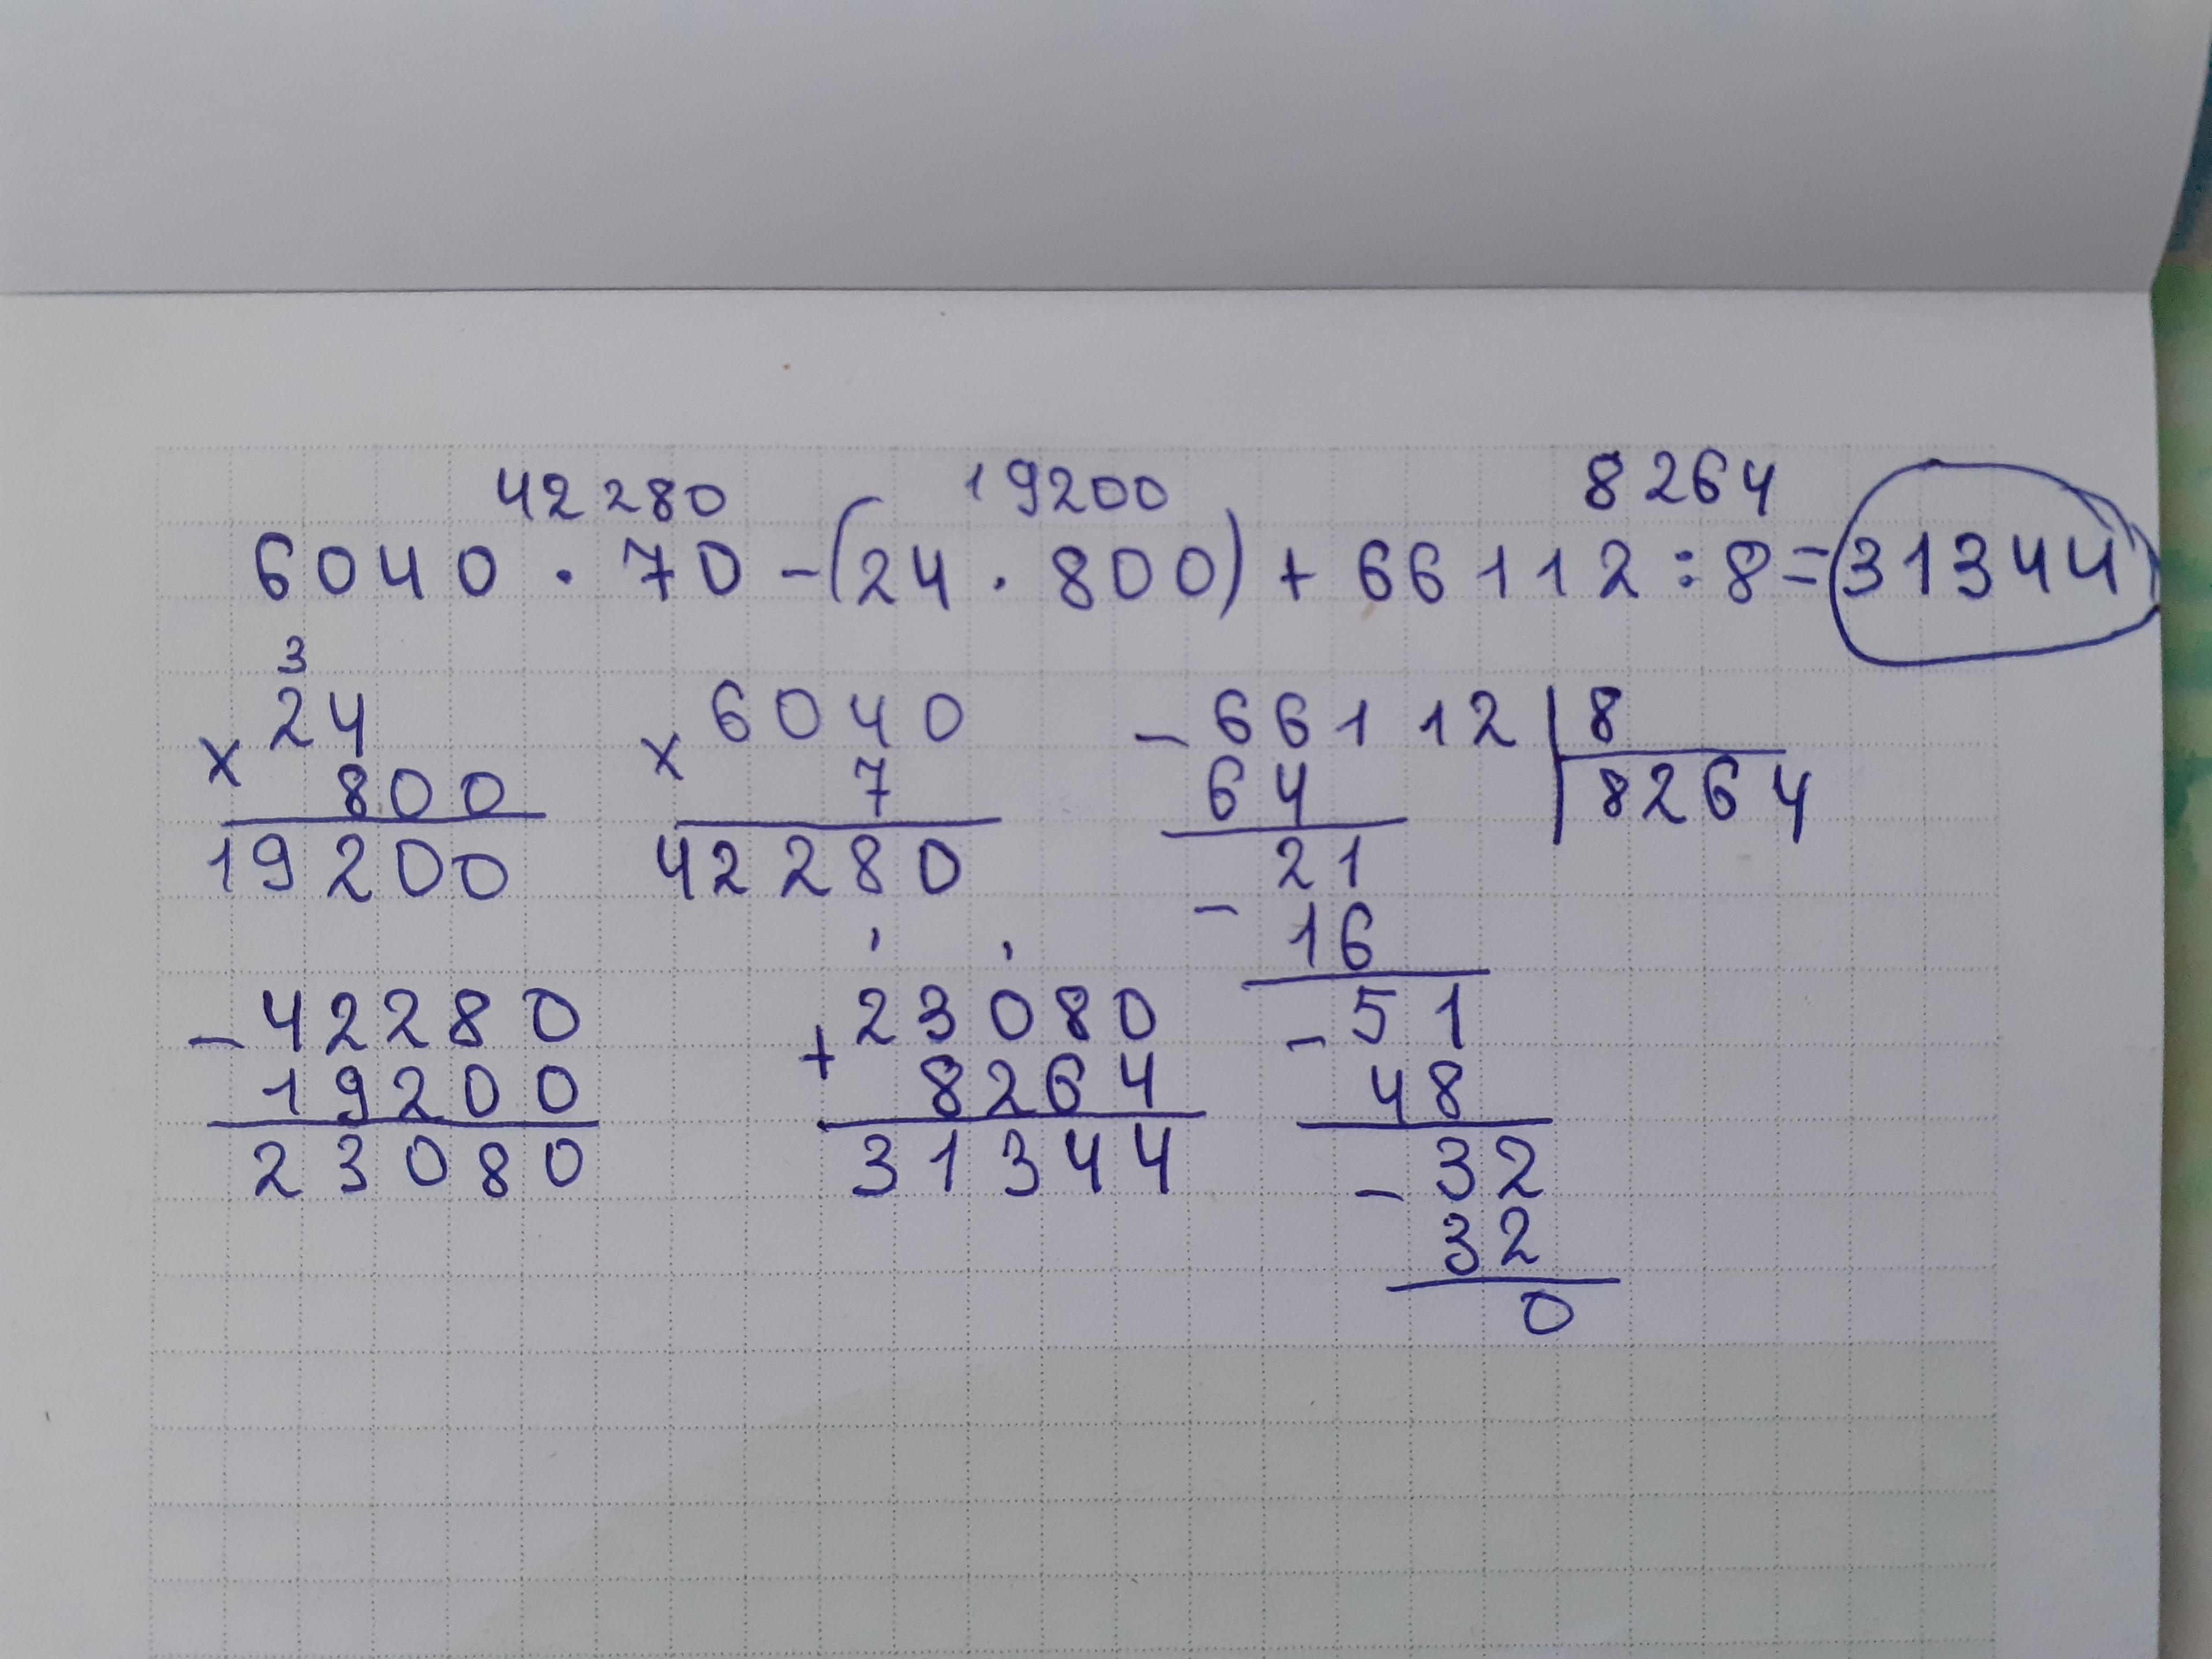 42280 19200 8264
6040 · 70 - (24 · 800) + 66112 : 8 = 31344
3
24
× 800
19200
6040
× 7
42280
- 66112 | 8
64 8264
21
- 16
- 51
48
- 32
32
0
- 42280
19200
23080
1 1
23080
+ 8264
31344